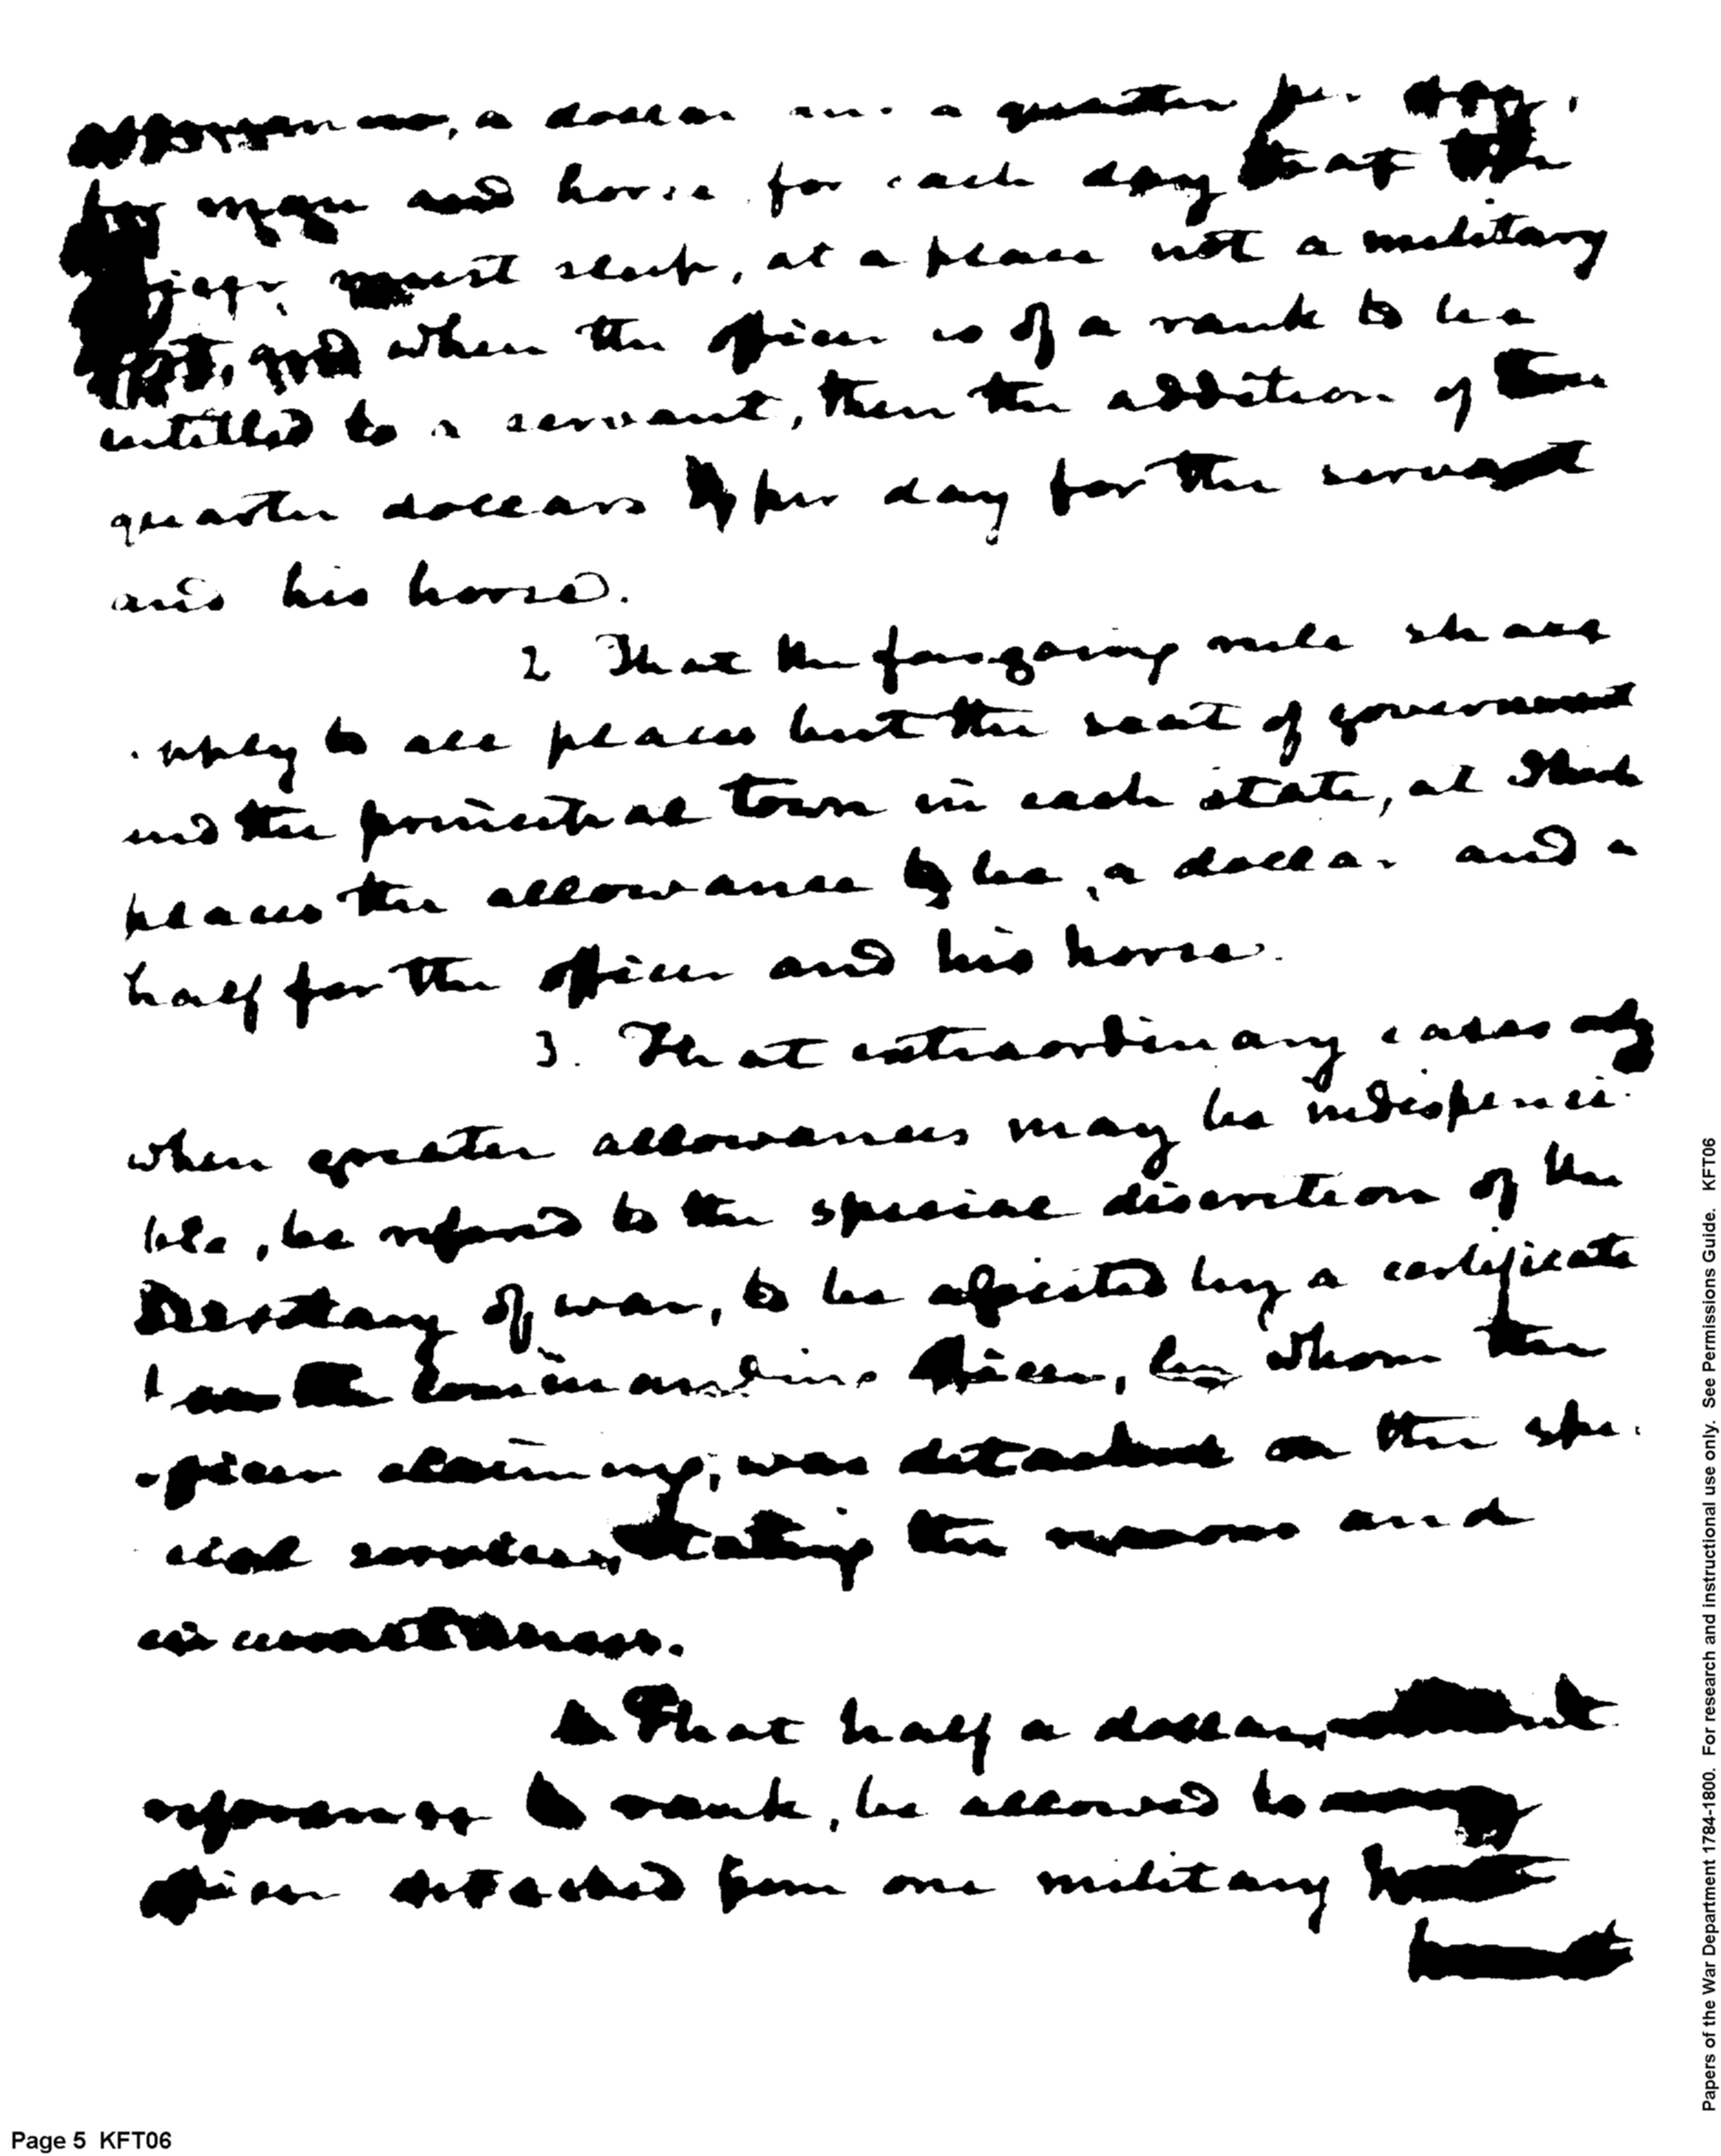 a dollar and a quarter per day.
for man and horse for each day that the
must sleep, at a place not a military
post, and when the officer is of a rank to be
intitled to a servant, then the addition of three
quarter dollars per day for the servant
and his horse.
2 That the foregoing rule shall
apply to all places but the seat of government
and the principal town in each state, at such
places the allowance to be, a dollar and a
half for the officer and his horse.
3. That extraordinary cases only
when greater allowances may be indispensi-
ble, be refered to the special discretion of the
Secretary of war, to be assisted by a certificate
from the Commanding officer, by whom the
officer claiming, was detached on the spe-
cial service, stating the reasons and
circumstances.
That half a dollar without
to rank, be allowed to any
officer detached from one military post
Papers of the War Department 1784-1800. For research and instructional use only. See Permissions Guide. KFT06
Page 5 KFT06